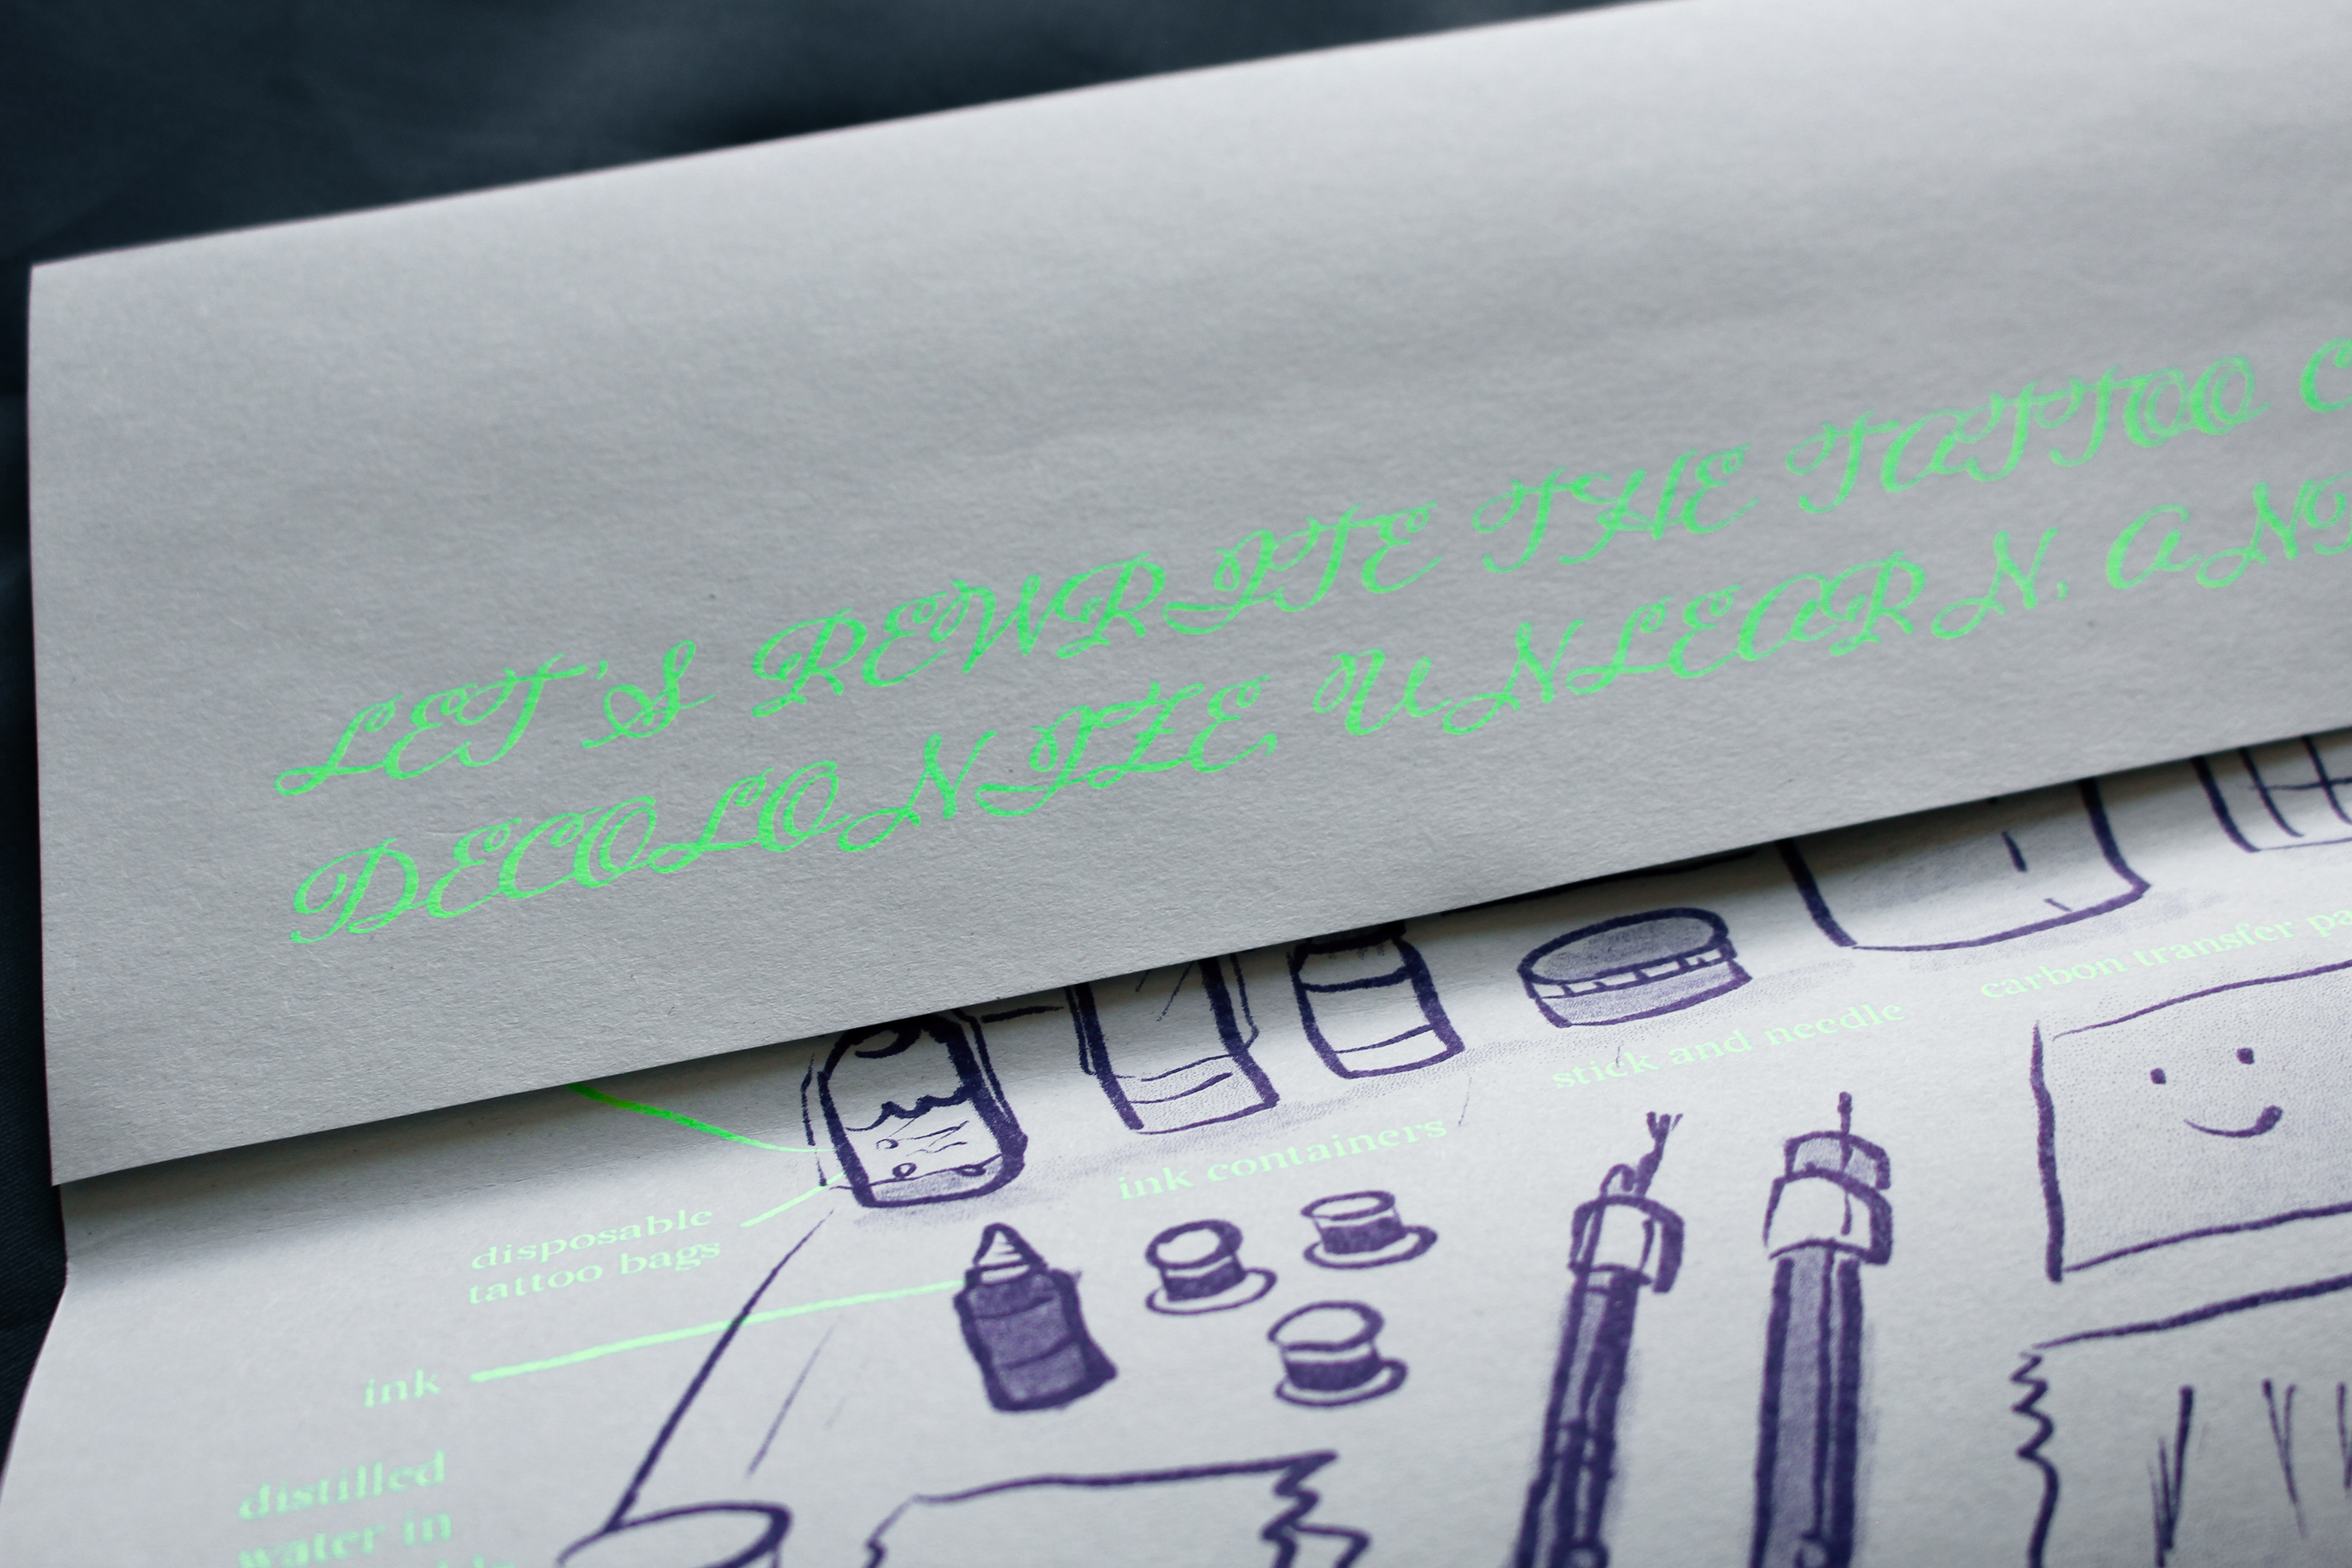 LET'S REWRITE THE TATTOO
DECOLONIZE, UNLEARN, AND
carbon transfer
stick and needle
ink containers
disposable
tattoo bags
ink
distilled
water in